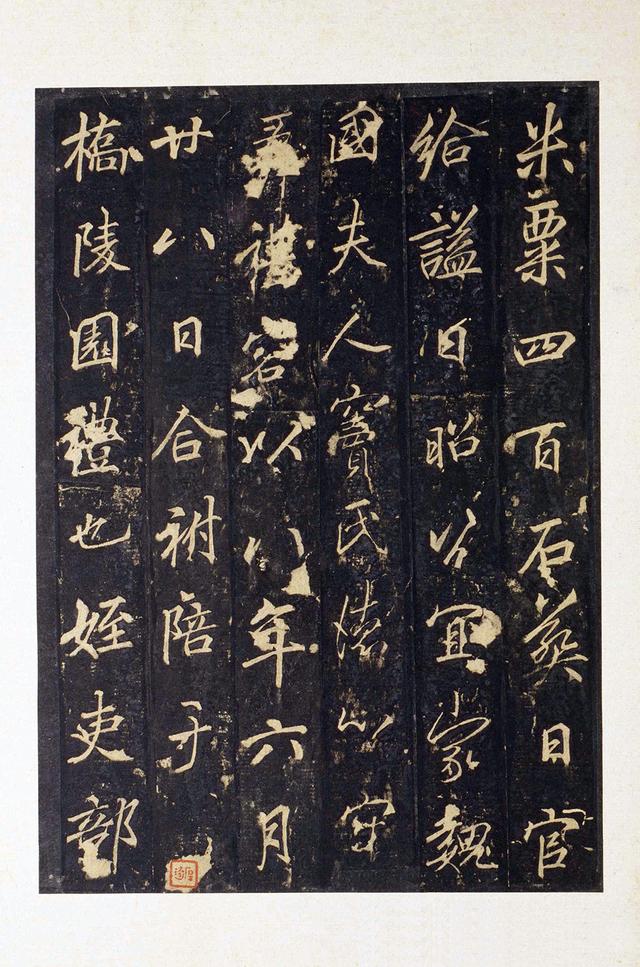 米粟四百石葬日官
給謚曰昭公宜家魏
國夫人竇氏心守
容以八年六月
廿八日合祔陪于
橋陵園禮也姪吏部